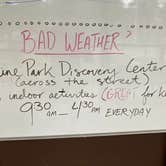 BAD WEATHER?
ine Park Discovery Center
(across the street)
indoor activities (GREAT for k
9:30 AM - 4:30 AM EVERYDAY